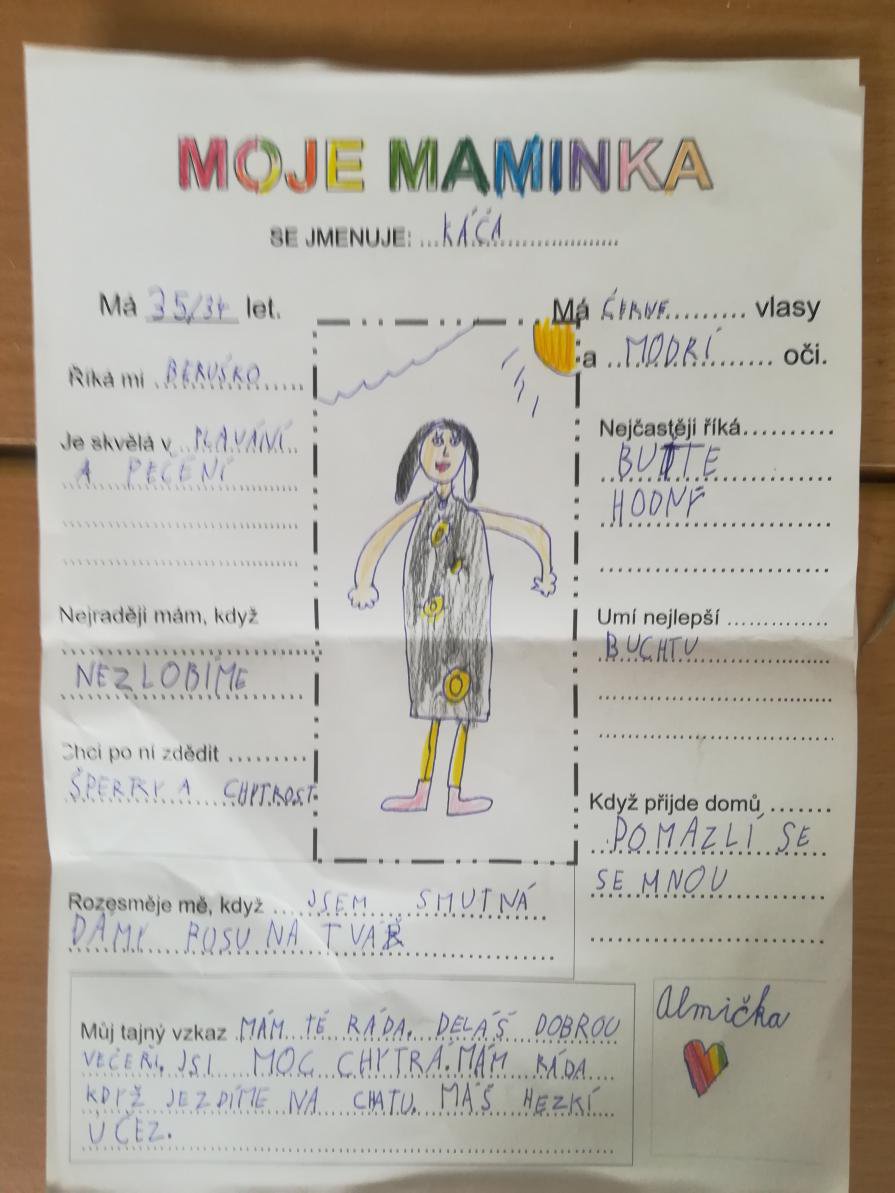 MOJE MAMINKA
SE JMENUJE: ...KÁČA
Má 35/34 let.
Má ČERNÉ......... vlasy
a ..MODRÍ......... oči.
Říká mi .BERUŠKO.....
Je skvělá v..PLAVÁNÍ
A PEČENÍ
Nejčastěji říká..........
BUĎTE
HODNÝ
Nejraději mám, když
NEZLOBÍME
Umí nejlepší ..............
BUCHTU
Chci po ní zdědit .........
ŠPERKY A CHYTROST
Když přijde domů .......
POMAZLÍ SE
SE MNOU
Rozesměje mě, když ....JSEM SMUTNÁ
DÁMY PUSU NA TVÁŘ
Můj tajný vzkaz MÁM TĚ RÁDA. DELÁŠ DOBROU
VEČEŘI. JSI MOC CHYTRÁ. MÁM RÁDA
KDYŽ JEZDÍME NA CHATU. MÁŠ HEZKÍ
ÚČEZ.
Almička